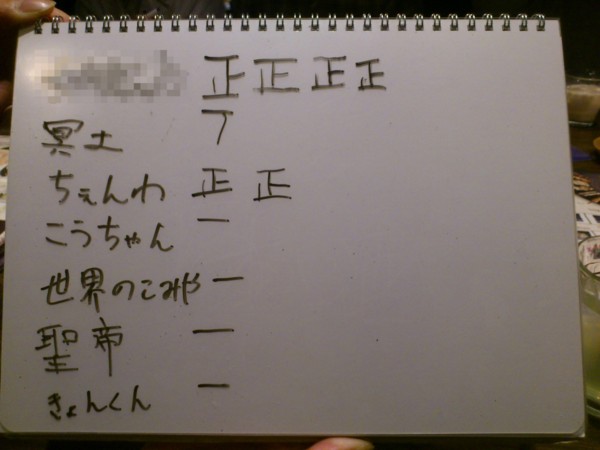 正正正正
冥土 丅
ちぇんわ 正正
こうちゃん 一
世界のこみや 一
聖帝 一
きょんくん 一